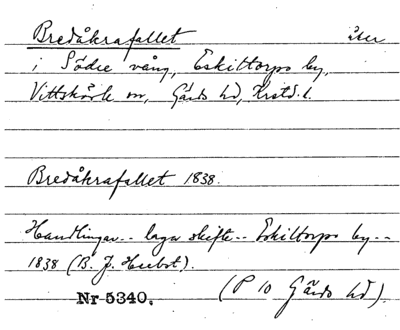 Bredåkrafallet åker
i Södre vång, Eskiltorps by,
Vittskövle sn, Gärds hd, Krstd. l.
Bredåkrafallet 1838.
Handlingar -- laga skifte -- Eskiltorps by --
1838 (B. J. Hubst).
Nr 5340. (P 10 Gärds hd).